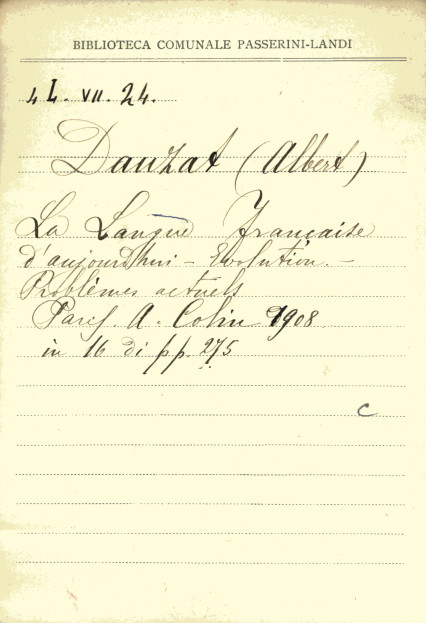 BIBLIOTECA COMUNALE PASSERINI-LANDI
4 L. VII. 24.
Dauzat (Albert)
La Langue Française
d'aujourd'hui - Evolution. -
Problèmes actuels
Paris. A. Colin 1908
in 16 di pp. 275
C